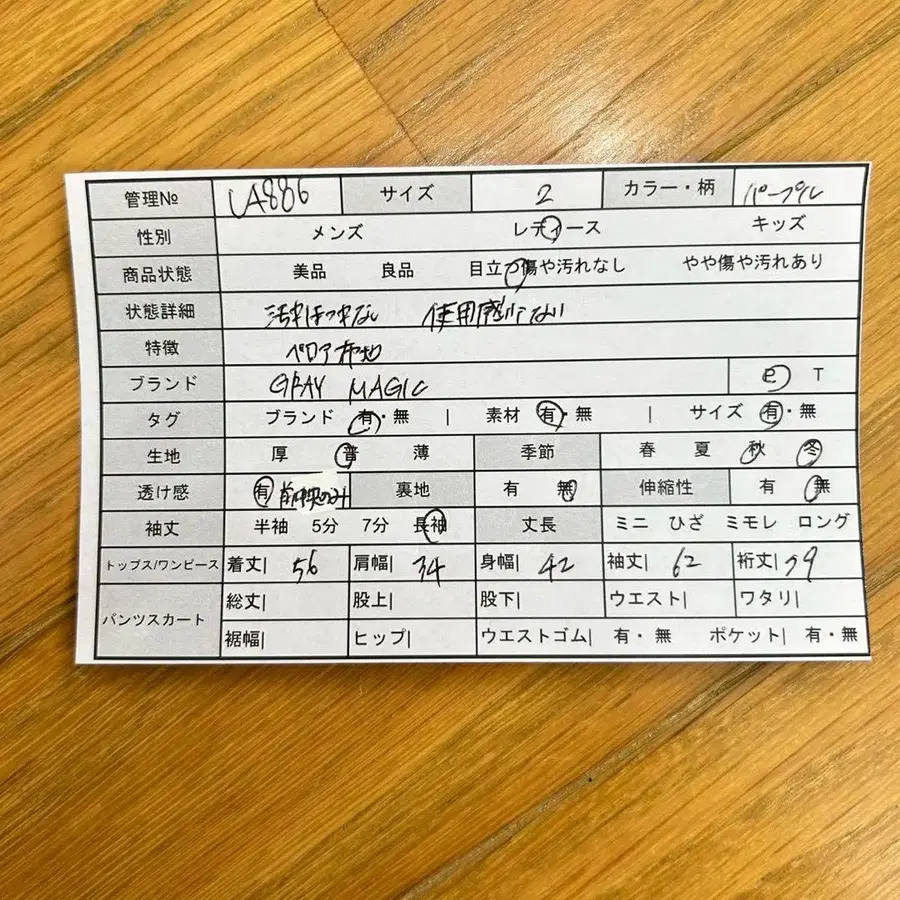 管理№ LA886 サイズ 2 カラー・柄 パープル
性別 メンズ レディース キッズ
商品状態 美品 良品 目立つ傷や汚れなし やや傷や汚れあり
状態詳細 使用感少ない
特徴 ベロア布地
ブランド GRAY MAGIC E T
タグ ブランド 有・無 | 素材 有・無 | サイズ 有・無
生地 厚 普 薄 季節 春 夏 秋 冬
透け感 有 前中央のみ 裏地 有 無 伸縮性 有 無
袖丈 半袖 5分 7分 長袖 丈長 ミニ ひざ ミモレ ロング
トップス/ワンピース 着丈| 56 肩幅| 34 身幅| 42 袖丈| 62 裄丈| 79
パンツスカート 総丈| 股上| 股下| ウエスト| ワタリ|
裾幅| ヒップ| ウエストゴム| 有・無 ポケット| 有・無